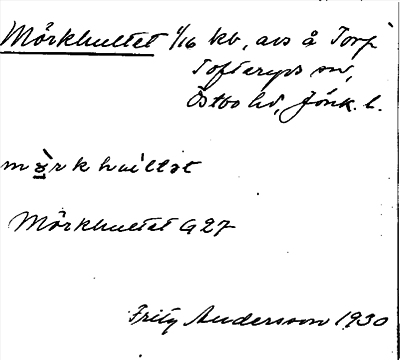 Mörkhultet 1/16 kb, avs å Torp
Tofteryds sn,
Östbo hd, Jönk. l.
mö̀rkhúltət
Mörkhultet G27
Fritz Andersson 1930